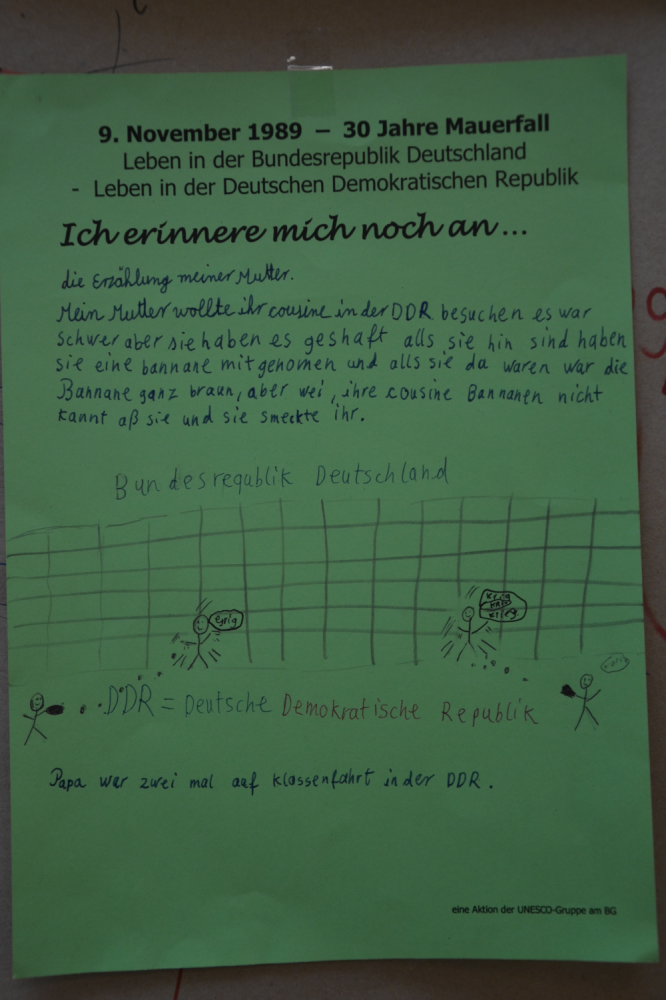 9. November 1989 – 30 Jahre Mauerfall
Leben in der Bundesrepublik Deutschland
- Leben in der Deutschen Demokratischen Republik
Ich erinnere mich noch an ...
die Erzählung meiner Mutter.
Mein Mutter wollte ihr cousine in der DDR besuchen es war
schwer aber sie haben es geshaft alls sie hin sind haben
sie eine bannane mitgenomen und alls sie da waren war die
Bannane ganz braun, aber wei, ihre cousine Bannanen nicht
kannt aß sie und sie smeckte ihr.
Bundesrequblik Deutschland
DDR = Deutsche Demokratische Republik
Papa war zwei mal auf klassenfahrt in der DDR.
eine Aktion der UNESCO-Gruppe am BG